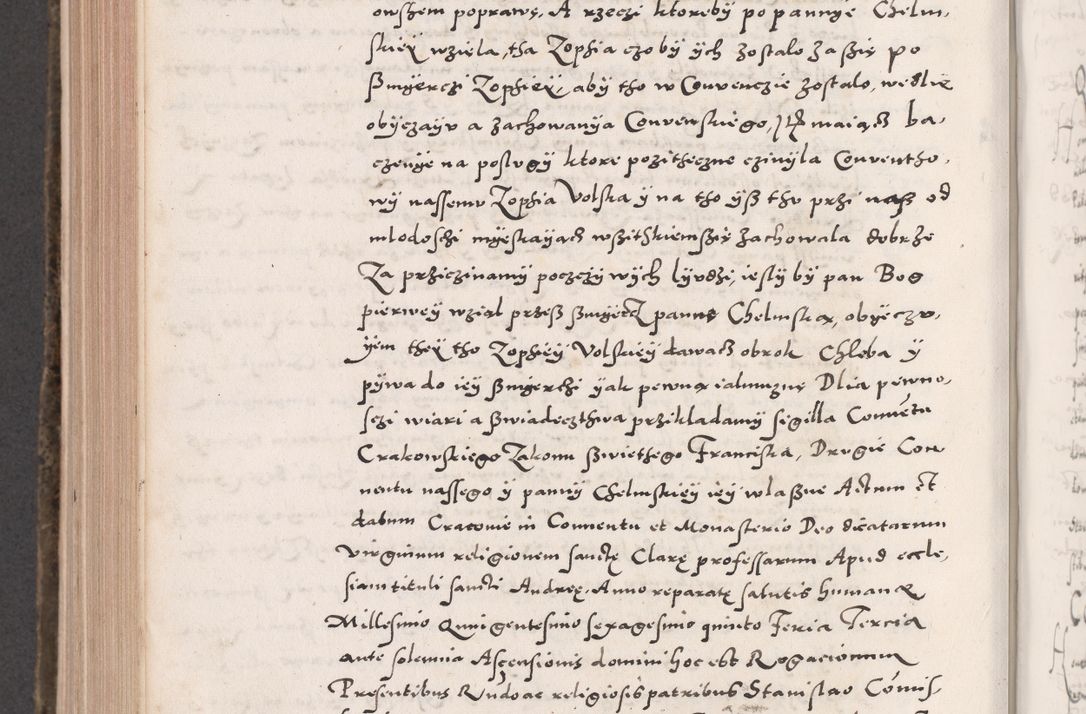 owssem poprawę. A rzeczi ktoreby po pannÿe Chelm-
skieÿ wziela, tha Zophia czobÿ ÿch zostalo zasię po
smÿerczi Zophieÿ, abÿ tho w Convenczie zostalo, wedlie
obÿczaÿv a zachowanÿa Convenskiego, maiącz ba-
czenÿe na poslugÿ ktore pozitheczne czinÿla Conventho-
wÿ nassemv Zophia Volska ÿ na tho ÿß thv przi nasz od
mlodoschi mÿeskaÿącz wszithkiemszię zachowala dobrze
Za prziczinamÿ poczcziwÿch lÿvdzi, iestlÿ bÿ pan Bog
pierweÿ wzial przeß smÿercz pannę Chelmską, obÿeczv-
ÿem theÿ tho Zophieÿ Volskieÿ dawacz obrok Chleba ÿ
pÿwa do ieÿ smÿerchi ÿak pewną ialmuznę Dlia pewno-
sczi wiari a swiadecthwa przikladamÿ sigilla Conuentu
Crakowskiego Zakonu swiethego Franciska, Drvgie Con
uentu nassego ÿ pannÿ Chelmskieÿ ieÿ wlasne Actum et
datum Cracouie in Conuentu et Monasterio Deo dicatarum
Virginum religionem sanctę Clarę professarum Apud eccle-
siam tituli sancti Andreę. Anno reparatę salutis humanæ
Millesimo Quingentesimo sexagesimo quinto Feria Tercia
ante solemnia Ascensionis domini hoc est Rogacionum
Presentibus Rndo ac religiosis patribus Stanislao Comis-